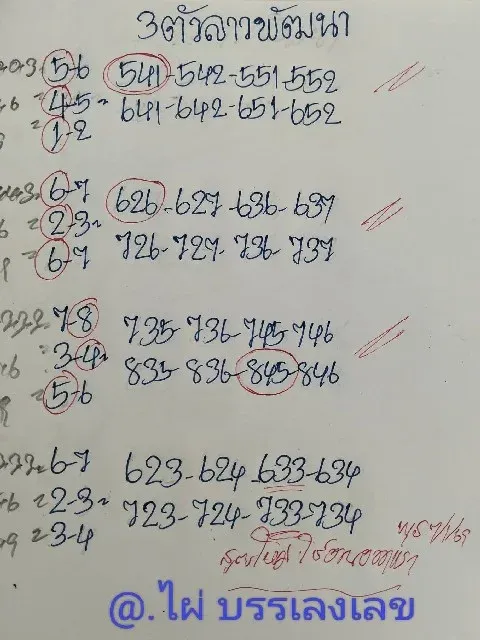 3ตัวลาวพัฒนา
5-6 541-542-551-552
4-5= 641-642-651-652
1-2
6-7 626-627-636-637
2-3= 726-727-736-737
6-7
7-8 735-736-745-746
3-4= 835-836-845-846
5-6
6-7 623-624-633-634
2-3= 723-724-733-734
3-4
@.ไผ่ บรรเลงเลข